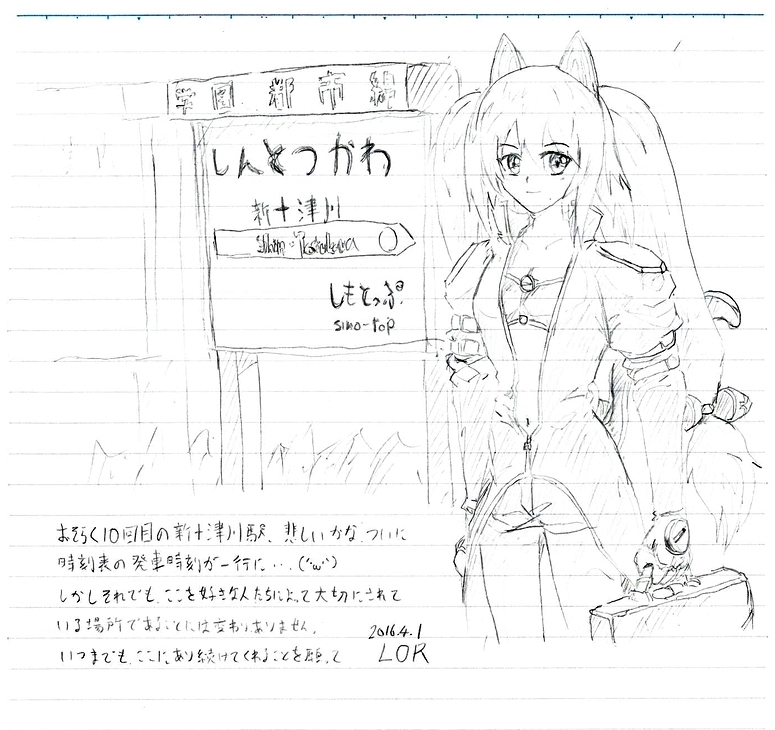 学園都市線
しんとつかわ
新十津川
Shin-Totsukawa
しもとっぷ
simo-top
おそらく10回目の新十津川駅、悲しいかな、ついに
時刻表の発車時刻が一行に...(´・ω・`)
しかしそれでも、ここを好きな人たちによって大切にされて
いる場所であることには変わりありません。
いつまでも、ここにあり続けてくれることを願って
2016.4.1
LOR